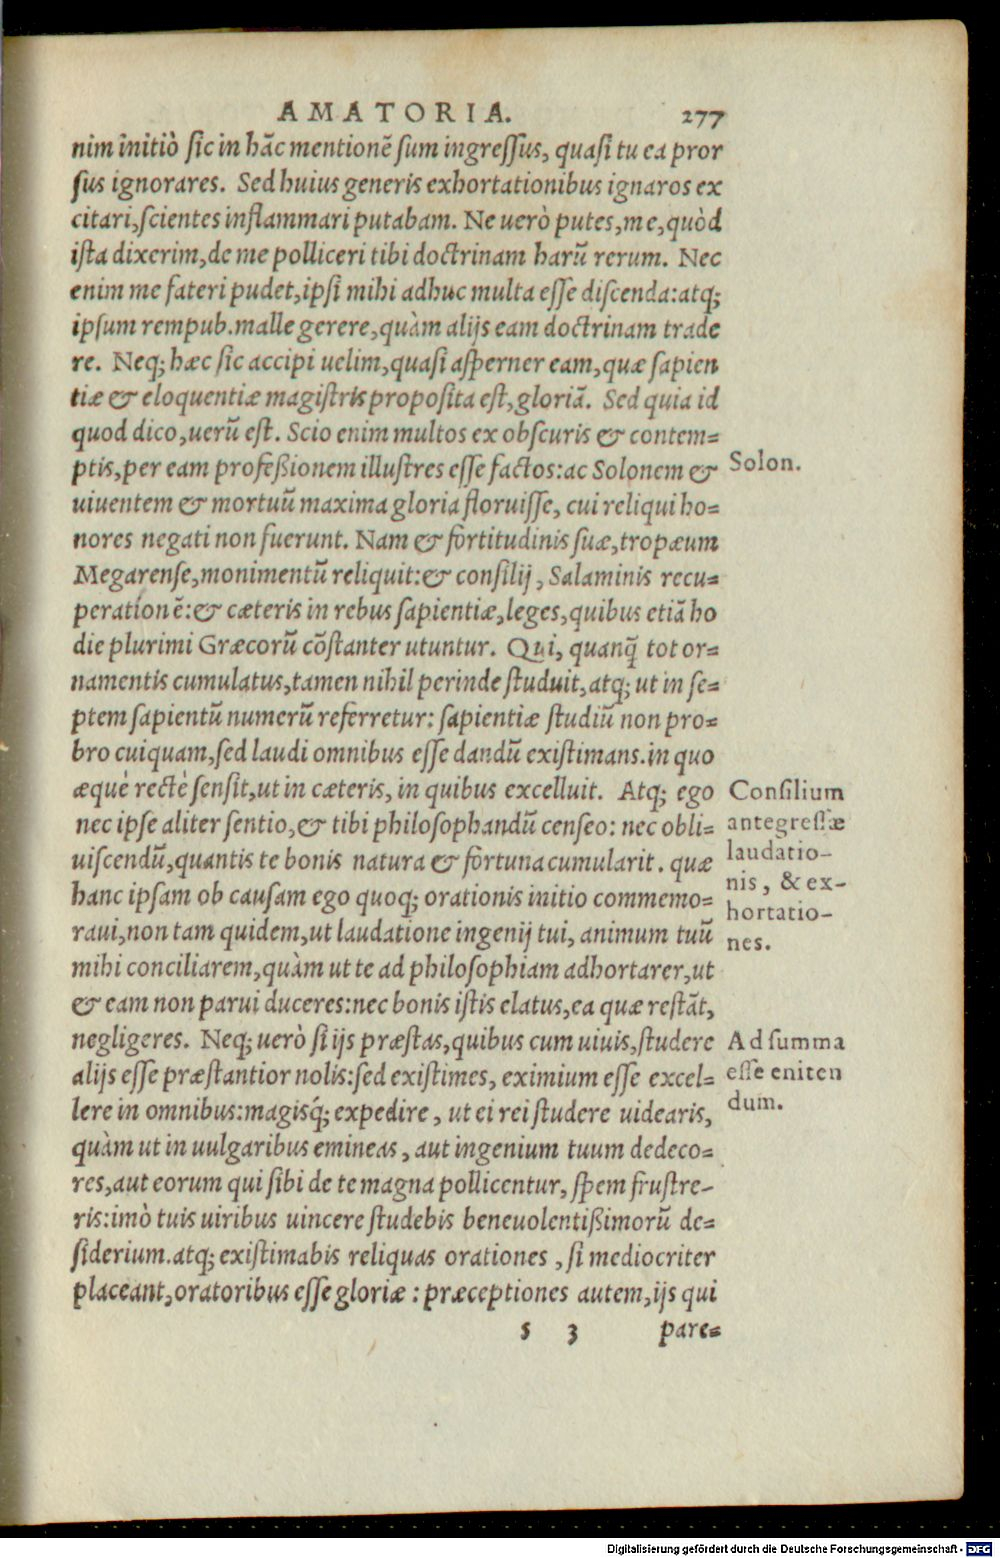 AMATORIA. 277
nim initiò sic in hāc mentionē sum ingressus, quasi tu ea pror
sus ignorares. Sed huius generis exhortationibus ignaros ex
citari, scientes inflammari putabam. Ne uerò putes, me, quòd
ista dixerim, de me polliceri tibi doctrinam harū rerum. Nec
enim me fateri pudet, ipsi mihi adhuc multa esse discenda: atq;
ipsum rempub. malle gerere, quàm alijs eam doctrinam trade
re. Neq; hæc sic accipi uelim, quasi asperner eam, quæ sapien
tiæ & eloquentiæ magistris proposita est, gloriā. Sed quia id
quod dico, uerū est. Scio enim multos ex obscuris & contem=
ptis, per eam profeßionem illustres esse factos: ac Solonem &
Solon.
uiuentem & mortuū maxima gloria floruisse, cui reliqui ho=
nores negati non fuerunt. Nam & fortitudinis suæ, tropæum
Megarense, monimentū reliquit: & consilij, Salaminis recu=
perationē: & cæteris in rebus sapientiæ, leges, quibus etiā ho
die plurimi Græcorū cōstanter utuntur. Qui, quanq̃ tot or=
namentis cumulatus, tamen nihil perinde studuit, atq; ut in se=
ptem sapientū numerū referretur: sapientiæ studiū non pro=
bro cuiquam, sed laudi omnibus esse dandū existimans. in quo
æquè rectè sensit, ut in cæteris, in quibus excelluit. Atq; ego
nec ipse aliter sentio, & tibi philosophandū censeo: nec obli=
uiscendū, quantis te bonis natura & fortuna cumularit. quæ
hanc ipsam ob causam ego quoq; orationis initio commemo=
raui, non tam quidem, ut laudatione ingenij tui, animum tuū
Consilium
antegressæ
laudatio-
nis, & ex-
hortatio-
nes.
mihi conciliarem, quàm ut te ad philosophiam adhortarer, ut
& eam non parui duceres: nec bonis istis elatus, ea quæ restāt,
negligeres. Neq; uerò si ijs præstas, quibus cum uiuis, studere
alijs esse præstantior nolis: sed existimes, eximium esse excel=
lere in omnibus: magisq́; expedire, ut ei rei studere uidearis,
Ad summa
esse eniten
dum.
quàm ut in uulgaribus emineas, aut ingenium tuum dedeco=
res, aut eorum qui sibi de te magna pollicentur, spem frustre-
ris: imò tuis uiribus uincere studebis beneuolentißimorū de=
siderium. atq; existimabis reliquas orationes, si mediocriter
placeant, oratoribus esse gloriæ: præceptiones autem, ijs qui
s 3 pare=
Digitalisierung gefördert durch die Deutsche Forschungsgemeinschaft - DFG